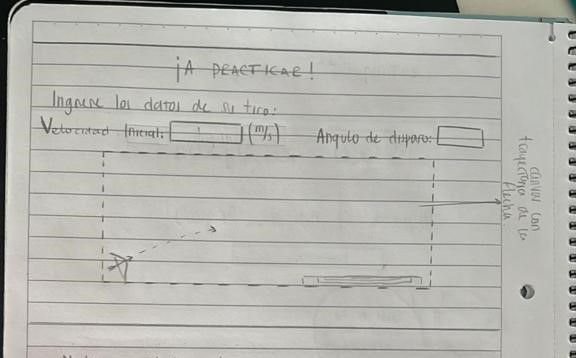 ¡A PRACTICAR!
Ingrese los datos de su tiro:
Velocidad Inicial: (m/s) Angulo de disparo:
canvas con
trayectoria de la
flecha.